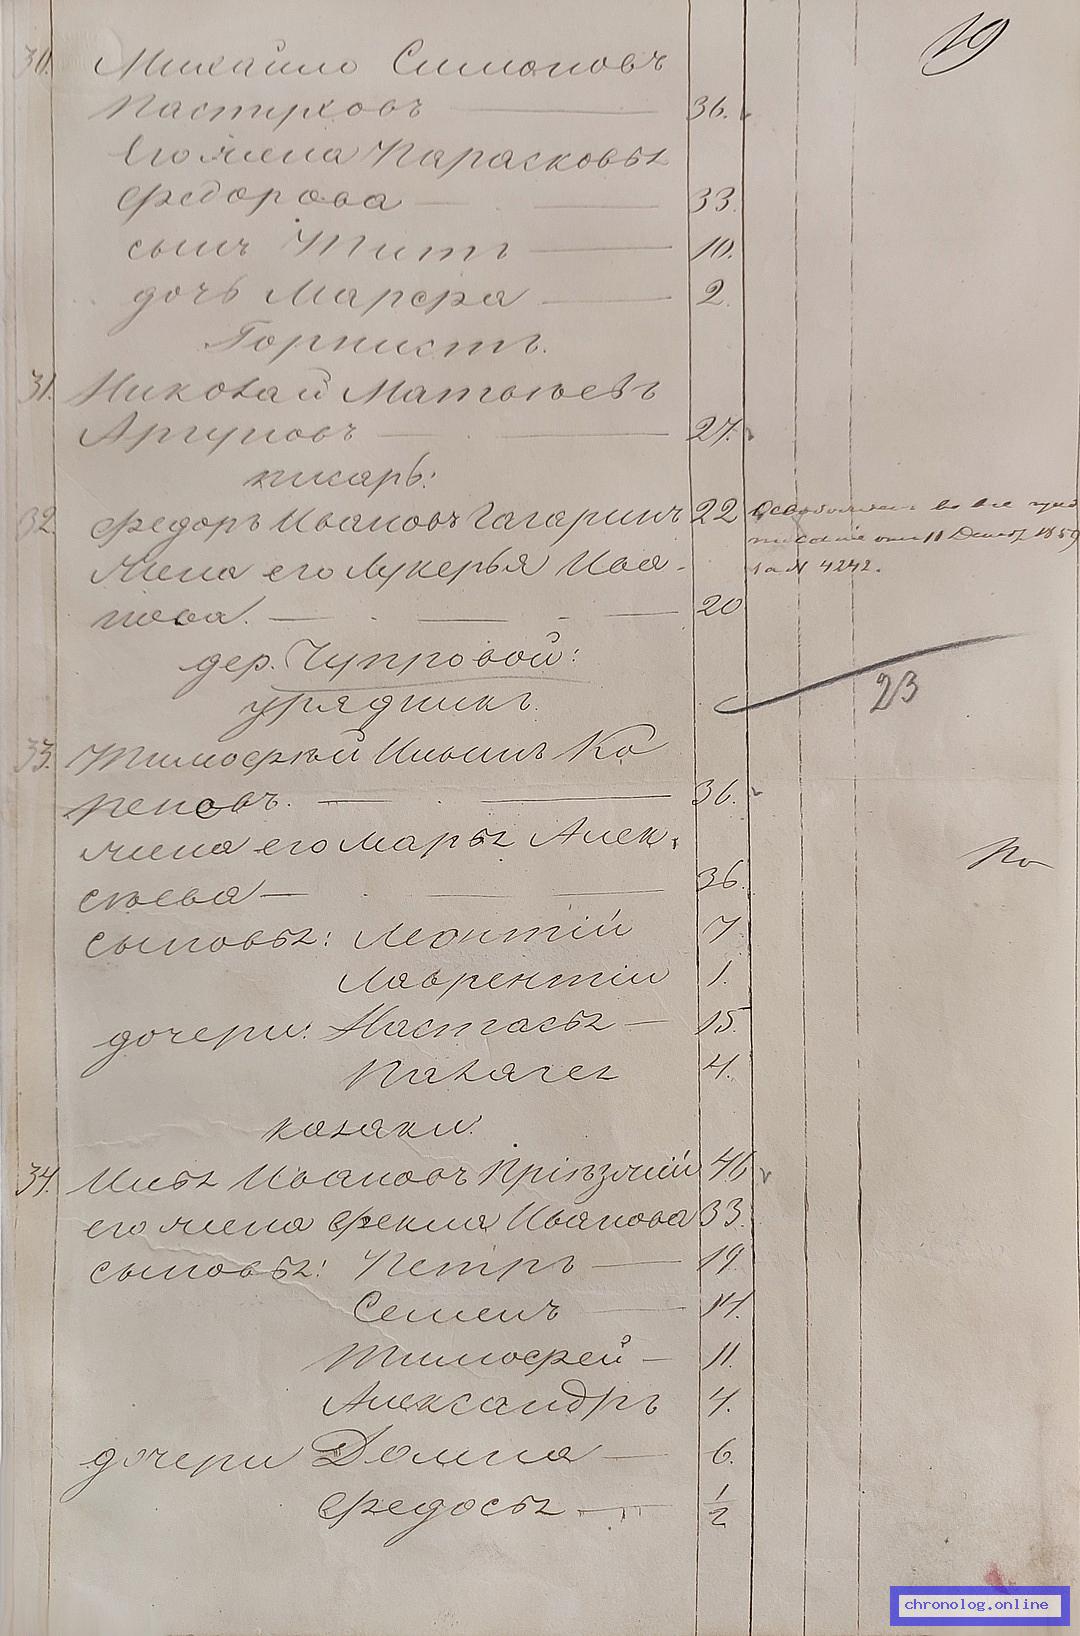 19
30. Михайло Симоновъ
Пастуховъ 36.
Его жена Парасковья
Федорова 33.
сынъ Титъ 10.
дочь Марфа 2.
Горнистъ.
31. Николай Матвѣевъ
Аргуновъ 27.
писарь:
32. Федоръ Ивановъ Гагаринъ 22
во все
от 11 Декаб. 1859
за № 4242.
Жена его Лукерья Ива-
нова. 20
дер. Чупровой:
урядникъ.
23
33. Тимофѣй Ильинъ Ко
реновъ. 36.
жена его Марья Алек-
сѣева 36.
сыновья: Леонтій 7.
Лаврентій 1.
дочери: Настасья 15.
Палагея 4.
казаки:
34. Илья Ивановъ Пріезжій 46
его жена Фекла Иванова 33.
сыновья: Петръ 19.
Семенъ 14.
Тимофей 11.
Александръ 4.
дочери Домна 6.
Федосья 1/2
chronolog.online